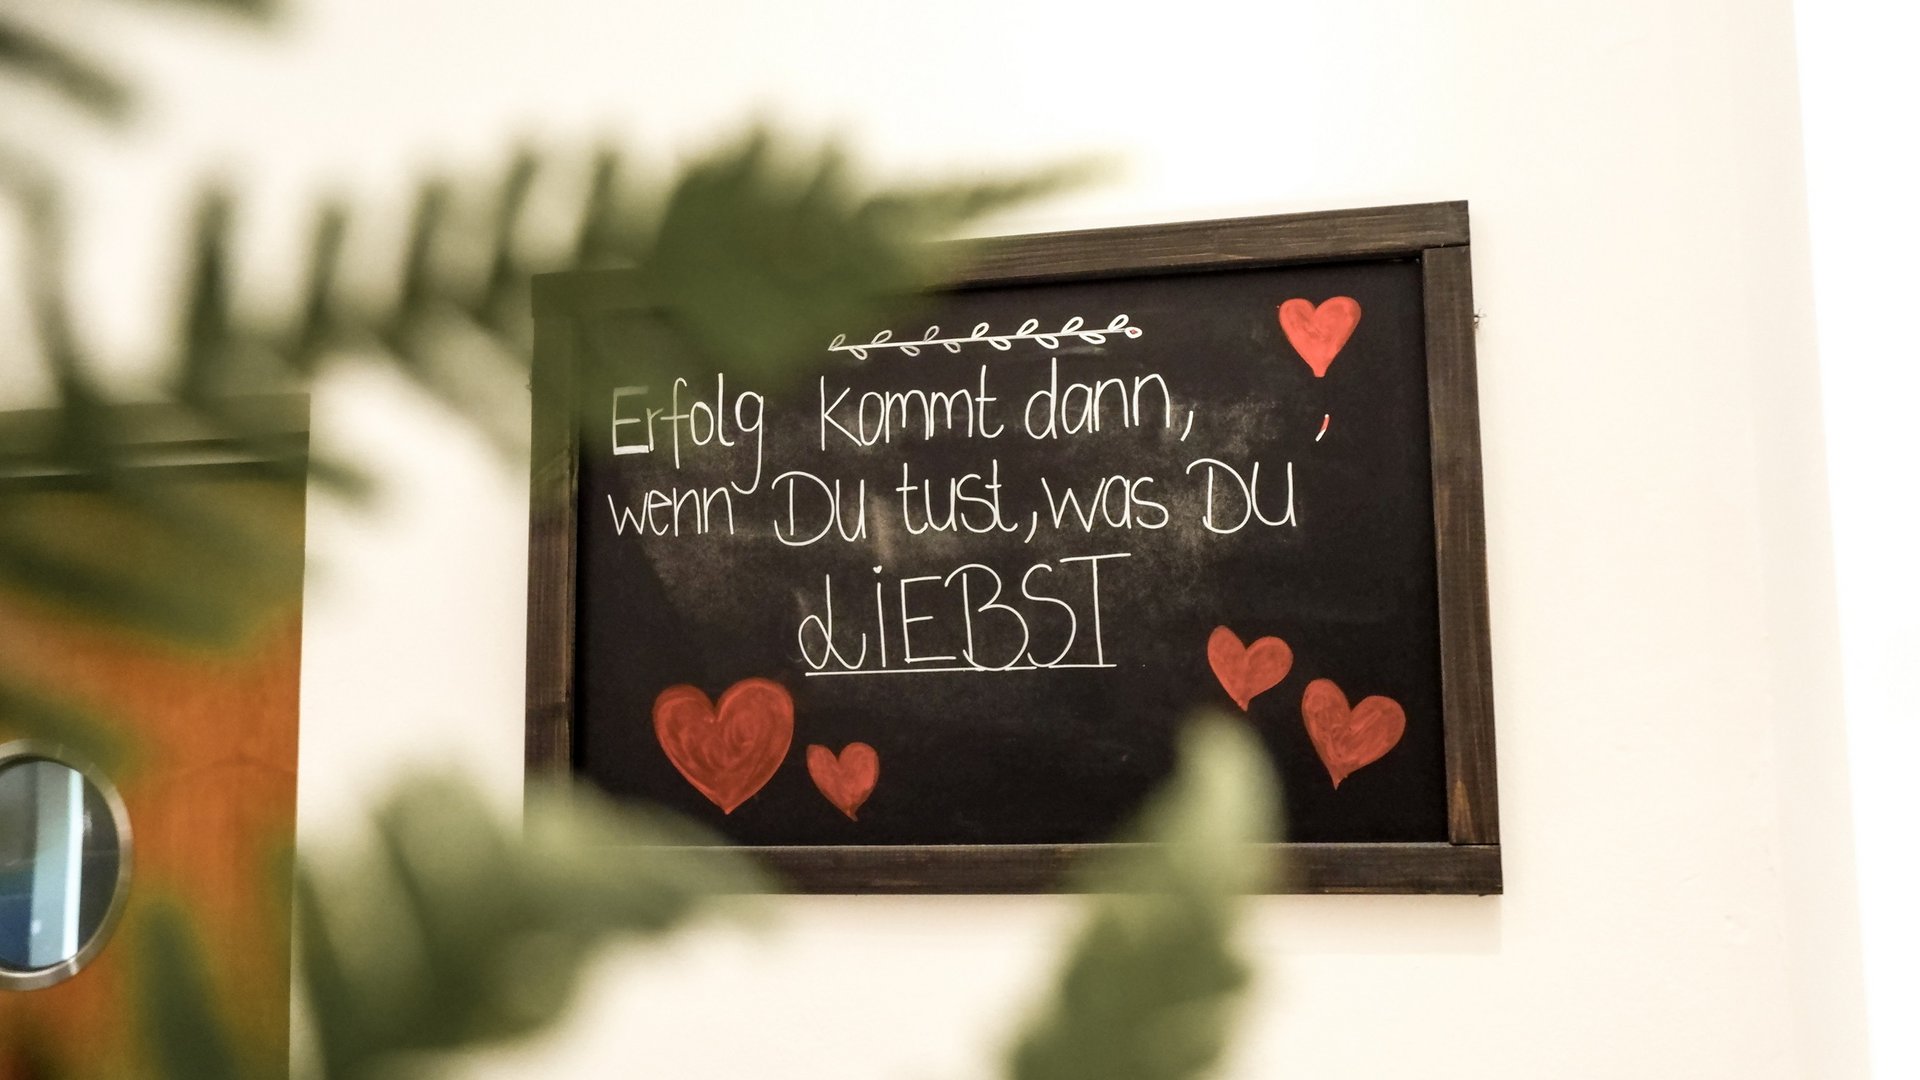 Erfolg kommt dann,
wenn Du tust, was DU
LiEBST